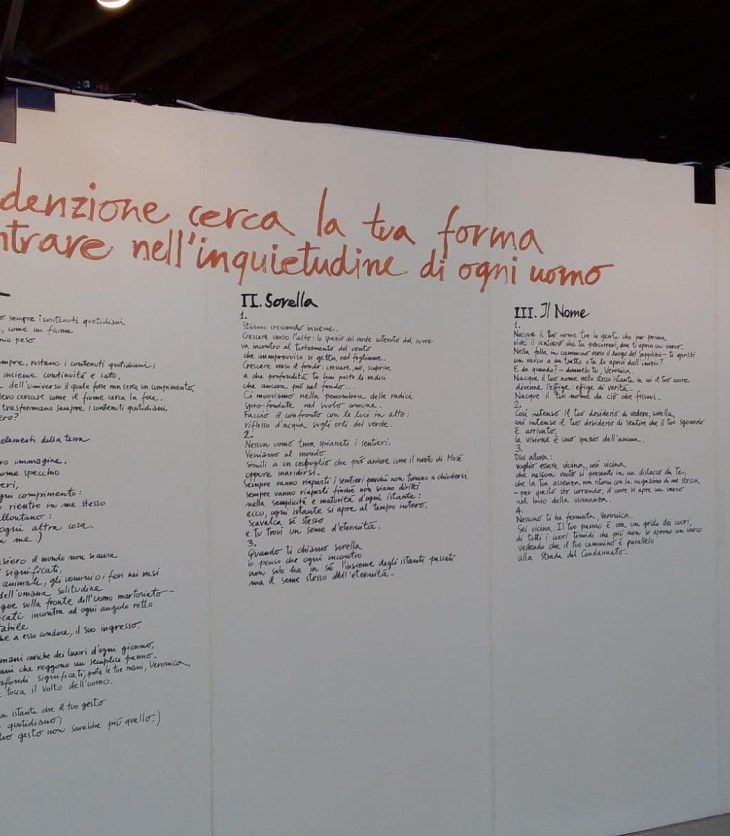 denzione cerca la tua forma
ntrare nell'inquietudine di ogni uomo
o sempre i contenuti quotidiani
, come un fiume
peso
mpre, mutano i contenuti quotidiani;
insieme continuità e iato.
dell'universo il quale forse non cerca un compimento,
devo cercare come il fiume cerca la foce.
trasformano sempre i contenuti quotidiani
elementi della terra
immagine.
ome specchio
ogni compimento:
rientro in me stesso
allontano:
ogni altra cosa.
me.)
siero il mondo non aveva
significati,
animale, gli uomini o i fiori nei vasi
dell'umana solitudine
gue sulla fronte dell'uomo martoriato –
incontra ad ogni angolo retto
tabile
e a esso conduce, il suo ingresso.
mani cariche dei lavori d'ogni giorno,
ani che reggono un semplice panno.
profondi significati, porta le tue mani, Veronica,
tocca il volto dell'uomo.
n istante che il tuo gesto
quotidiano;
tuo gesto non sarebbe più quello.)
II. Sorella
1.
Stiamo crescendo insieme.
Crescere verso l'alto: lo spazio del verde intento del cuore
un incontro al turbamento del vento
che improvviso si getta nel fogliame.
Crescere verso il fondo: crescere, no, scoprire
a che profondità tu hai posto le radici
che ancora più nel fondo...
Ci muoviamo nella penombra delle radici
sprofondate nel suolo comune.
Faccio il confronto con le luci in alto:
riflesso d'acqua sugli orli del verde.
2.
Nessun uomo trova spianati i sentieri.
Veniamo al mondo
simili a un cespuglio che può ardere come il roveto di Mosè
oppure inaridirsi.
Sempre vanno riaperti i sentieri perché non tornino a chiudersi
sempre vanno riaperti finché non siano diritti
nella semplicità e maturità d'ogni istante:
ecco, ogni istante si apre al tempo intero,
scavalca sé stesso
e tu trovi un seme d'eternità.
3.
Quando ti chiamo sorella
io penso che ogni incontro
non solo ha in sé l'insieme degli istanti passati
ma il seme stesso dell'eternità.
III. Il Nome
1.
Nasceva il tuo nome tra la gente che per prima
vide il sentiero che tu percorrevi, dove ti aprivi un varco.
Nella folla in cammino verso il luogo del Supplizio – ti apristi
un varco a un tratto o te lo aprivi dall'inizio?
E da quando? – dimmelo tu, Veronica.
Nacque il tuo nome nello stesso istante, in cui il tuo cuore
divenne l'effige: effige di verità.
Nacque il tuo nome da ciò che fissavi.
2.
Così intenso il tuo desiderio di vedere, sorella,
così intenso il tuo desiderio di sentire che il tuo sguardo
È arrivato,
la visione è uno spazio dell'anima.
3.
Dici allora:
voglio essere vicina, così vicina
che nessun vuoto si presenti in un distacco da Te,
che la tua assenza non ritorni con la negazione di me stessa,
– per questo sto correndo, il cuore si apre un varco
nel buio della vicinanza.
4.
Nessuno ti ha fermata, Veronica.
Sei vicina. Il tuo panno è ora un grido dei cuori,
di tutti i cuori timidi che più non si aprono un varco
vedendo che il tuo cammino è parallelo
alla strada del Condannato.